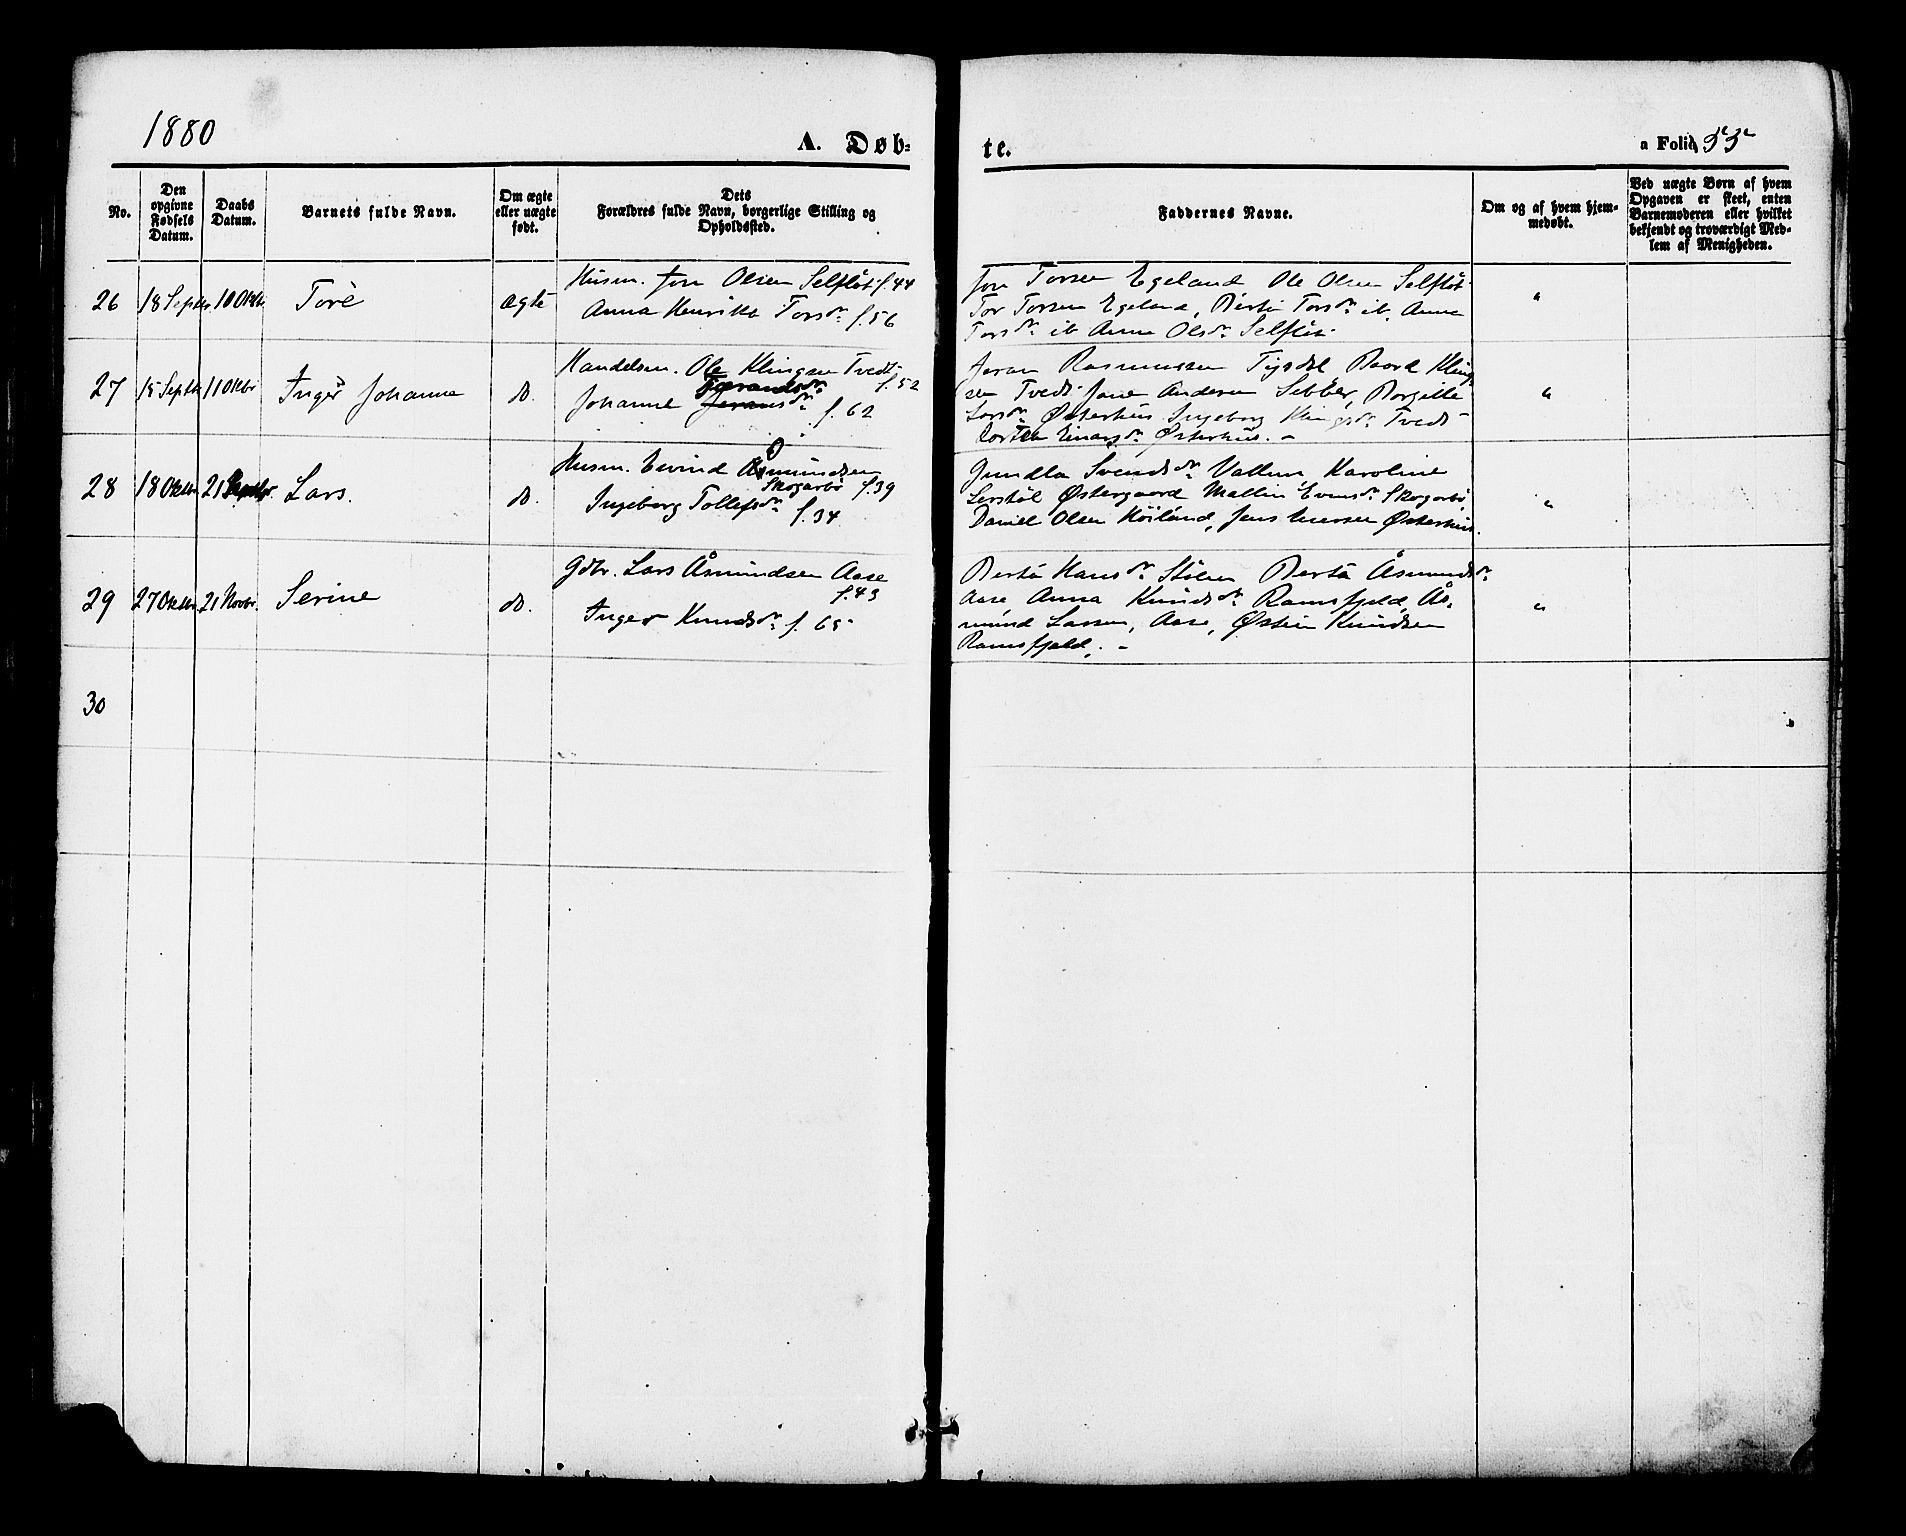 1880
A. Døb-
te.
a Folio 55
No.
Den
opgivne
Fødsels
Datum.
Daabs
Datum.
Barnets fulde Navn.
Om ægte
eller uægte
født.
Dets
Forældres fulde Navn, borgerlige Stilling og
Opholdssted.
Faddernes Navne.
Om og af hvem hjem-
medøbt.
Ved uægte Børn af hvem
Opgaven er skeet, enten
Barnemoderen eller hvilket
bekjendt og troværdigt Med-
lem af Menigheden.
26 18 Septbr 10 Oktbr Tore ægte
Husm. Jon Olsen Selfløt f. 44
Anna Henrikke Torsdr. f. 56
Jon Torsen Egeland Ole Olsen Selfløt
Tor Torsen Egeland, Berte Torsdr. ib. Anna
Torsdr. ib Anne Olsdr. Selfløt
"
27 15 Septbr 11 Oktbr Inger Johanne do.
Handelsm. Ole Klingsen Tvedt
f. 52
Johanne Jeransdr. f. 62
Jeran Rasmussen Tysdal, Baard Kling-
sen Tvedt Jane Andersen Sebber, Borgille
Larsdr. Østerhus Ingeborg Klingsdr. Tvedt
Dorthea Einarsdr. Østerhus. -
"
28 18 Oktbr 21 Lars. do.
Husm. Eivind Asmundsen
Skogarbø f. 39
Ingeborg Tollefsdr.
f. 34
Gundla Svendsdr. Vallun Karoline
Østergaard Mallin Evensdr. Skogarbø,
Daniel Olsen Høiland, Jens Østerhus.
"
29 27 Oktbr. 21 Novbr. Serine do.
Gdbr. Lars Åsmundsen Aase
f. 43
Inger Knudsdr. f. 65
Berta Hansdr. Stølen Berta Åsmundsdr.
Aase, Anna Knudsdr. Ramsfjeld, Ås-
mund Larsen, Aase, Østein Knudsen
Ramsfjeld. -
"
30